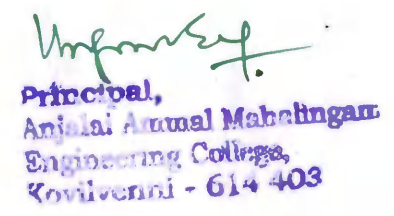 Principal,
Anjalai Ammal Mahalingam
Engineering College,
Kovilvenni - 614 403